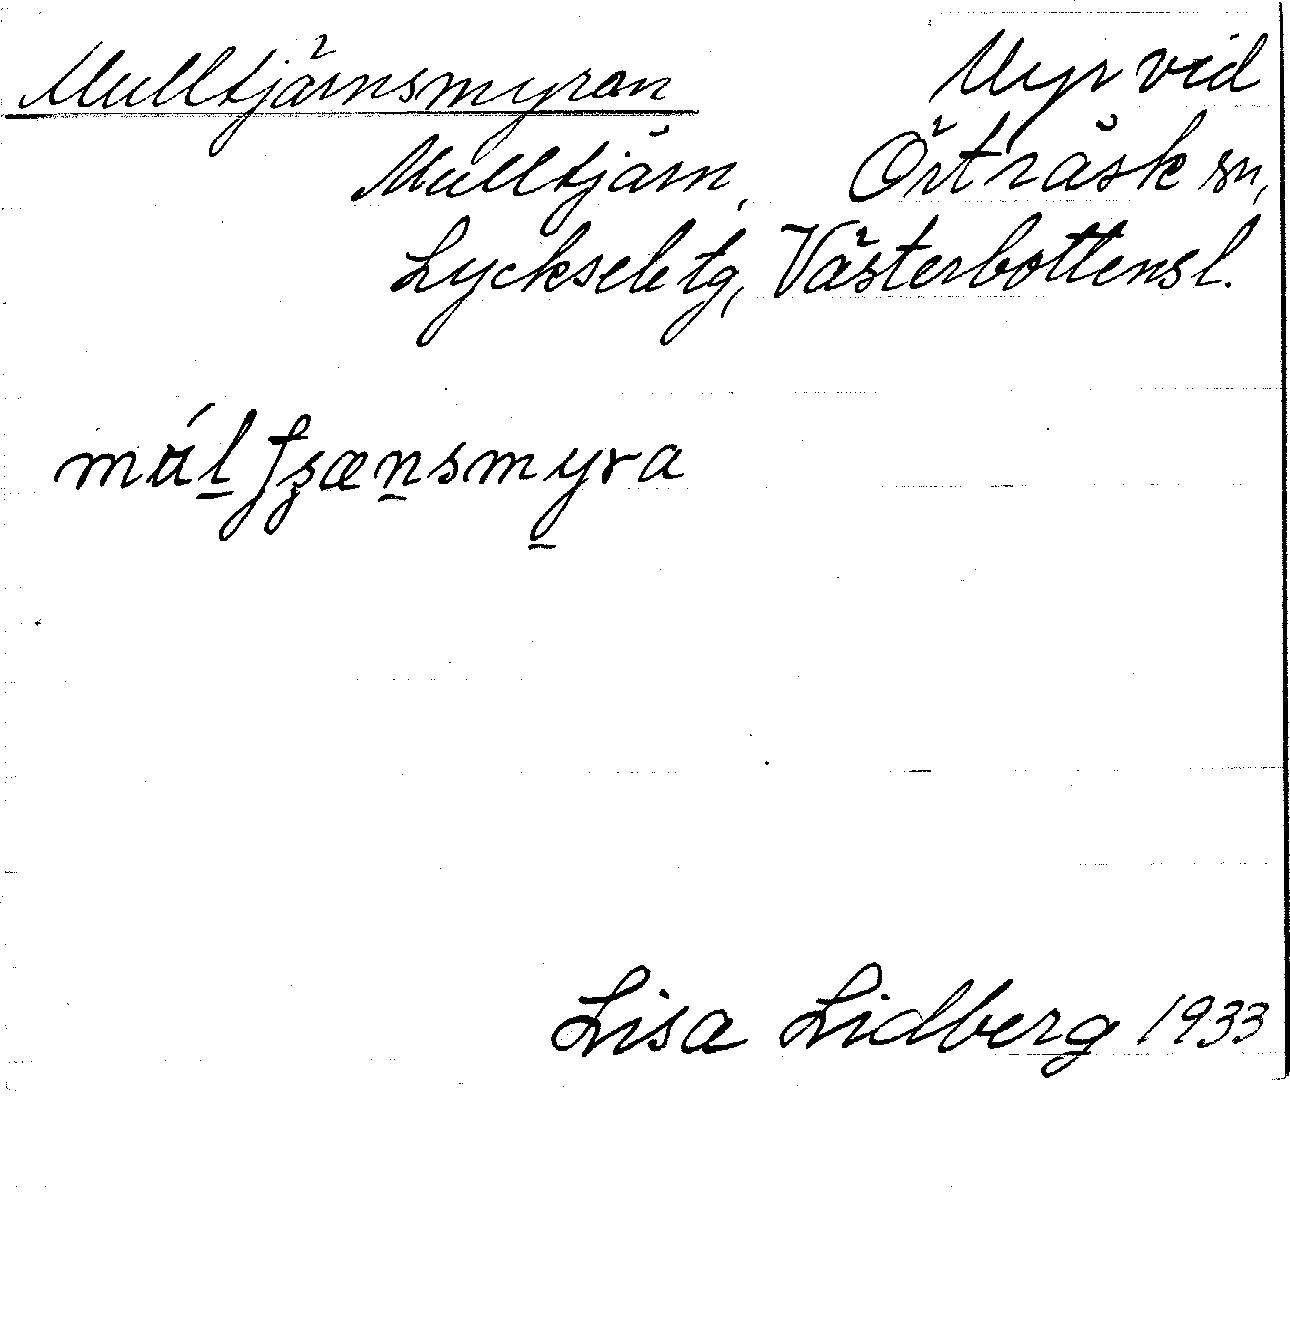 Mulltjärnsmyran Myr vid
Mulltjärn, Örträsk sn,
Lycksele tg, Västerbottensl.
Lisa Lidberg 1933